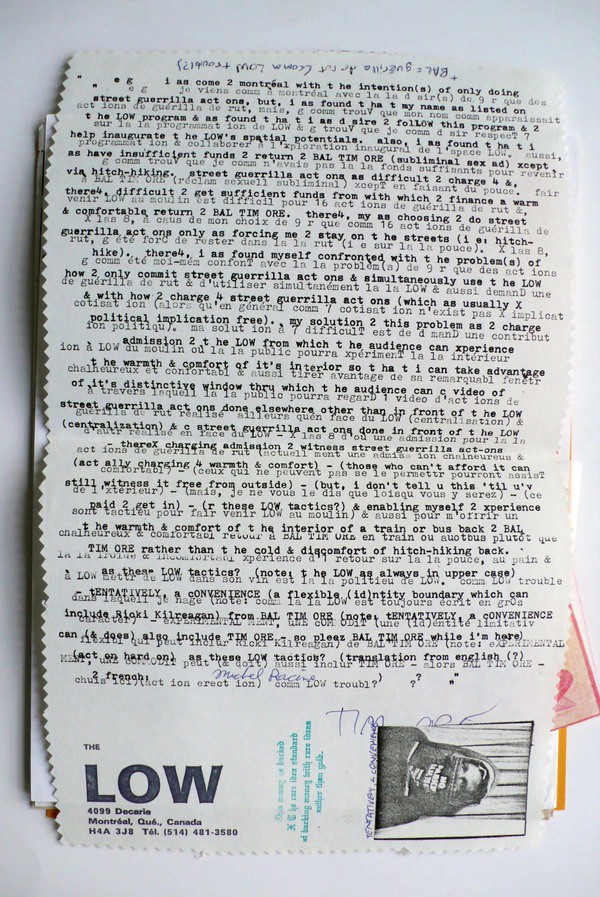 + BAL = guérilla de rut (comm LOW + troubl?)
" e g i as come 2 montréal with t he intention(s) of only doing
" e g je viens comm à montréal avec la la d sir(s) de 9 r que des
street guerrilla act ons, but, i as found t ha t my name as listed on
act ions de guérilla de rut, mais, g comm trouV que mon nom comm apparaissait
t he LOW program & as found t ha t i as d sire 2 folLOW this program & 2
sur la la programmat ion de LOW & g trouV que je comm d sir respecT 7
help inaugurate t he LOW's spatial potentials. also, i as found t ha t i
programmat ion & collaborer à l'xploration inaugural de l'space LOW. aussi,
as have insufficient funds 2 return 2 BAL TIM ORE (subliminal sex ad) xcept
g comm trouV que je comm n'avais pas la la fonds suffisants pour revenir
via hitch-hiking. street guerrilla act ons as difficult 2 charge 4 &,
à BAL TIM ORE (réclam sexuell subliminal) xcepT en faisant du pouce. fair
there4, difficult 2 get sufficient funds from which 2 finance a warm
venir LOW au moulin est difficil pour 16 act ions de guérilla de rut &,
& comfortable return 2 BAL TIM ORE. there4, my as choosing 2 do street
X las 8, à caus de mon choix de 9 r que comm 16 act ions de guérilla de
guerrilla act ons only as forcing me 2 stay on t he streets (i e: hitch-
rut, g été forC de rester dans la la rut (i e sur la la pouce). X las 8,
hike). there4, i as found myself confronted with t he problem(s) of
g comm été moi-mêm confonT avec la la problèm(s) de 9 r que des act ions
how 2 only commit street guerrilla act ons & simultaneously use t he LOW
de guérilla de rut & d'utiliser simultanément la la LOW & aussi demanD une
& with how 2 charge 4 street guerrilla act ons (which as usually X
cotisat ion (alors qu'en général comm 7 cotisat ion n'exist pas X implicat
political implication free). my solution 2 this problem as 2 charge
ion politiqu). ma solut ion à 7 difficulT est de d manD une contribut
admission 2 t he LOW from which t he audience can xperience
ion à LOW du moulin où la la public pourra xpérimenT la la intérieur
t he warmth & comfort of it's interior so t ha t i can take advantage
chalheureux et confortabl & aussi tirer avantage de sa remarquabl fenêtr
of it's distinctive window thru which t he audience can c video of
à travers laquell la la public pourra regarD 1 video d'act ions de
street guerrilla act ons done elsewhere other than in front of t he LOW
guérilla de rut réalisé ailleurs qu'en face du LOW (centralisation) &
(centralization) & c street guerrilla act ons done in front of t he LOW
d'autr réalisé en face du LOW - X las 8 d'où une admission pour la la
- thereX charging admission 2 witness street guerrilla act-ons
act ions de guérilla de rut (actuell ment une admiss ion chalheureus &
(act ally charging 4 warmth & comfort) - (those who can't afford it can
comfortabl) - (ceux qui ne peuvent pas se le permettr pourront assisT
still witness it free from outside) - (but, i don't tell u this 'til u'v
de l'xtérieur) - (mais, je ne vous le dis que loisqu vous y serez) - (ce
paid 2 get in) - (r these LOW tactics?) & enabling myself 2 xperience
sont tactieu pour fair venir LOW au moulin) & aussi pour m'offrir un
t he warmth & comfort of t he interior of a train or bus back 2 BAL
chalheureux & comfortabl retour à BAL TIM ORE en train ou auotbus plutôt que
TIM ORE rather than t he cold & discomfort of hitch-hiking back.
la la froide & inconfortabl xpérience d'1 retour sur la la pouce, au pain &
as these LOW tactics? (note: t he LOW as always in upper case)
à LOW mettr de LOW dans son vin est la la politiqu de LOW. comm LOW trouble
- tENTATIVELY, a cONVENIENCE (a flexible (id)ntity boundary which can
dans laquell je nage (note: comm la la LOW est toujours écrit en grOs
include Ricki Kilreagan) from BAL TIM ORE (note: tENTATIVELY, a cONVENIENCE
caractèr) - EXPÉRIMENTAL MENT, UNE COM ODIT (une (id)entité limitativ
can (& does) also include TIM ORE - so pleez BAL TIM ORE while i'm here)
flexibl qui peut inclur Ricki Kilreagan) de BAL TIM ORE (note: EXPÉRIMENTAL
- (act on hard on) as these LOW tactics? (translation from english (?)
MENT, UNE COM ODIT peut (& doit) aussi inclur TIM ORE - alors BAL TIM ORE -
2 french: Michel Racine ) ? "
chuis ici)(act ion erect ion) comm LOW troubl? ? "
TIM ORE
TENTATIVELY, a CONVENIENCE
This money is backed
X The rare idea standard
of backing money with rare ideas
rather than gold.
THE
LOW
4099 Decarie
Montréal, Qué., Canada
H4A 3J8 Tél. (514) 481-3580